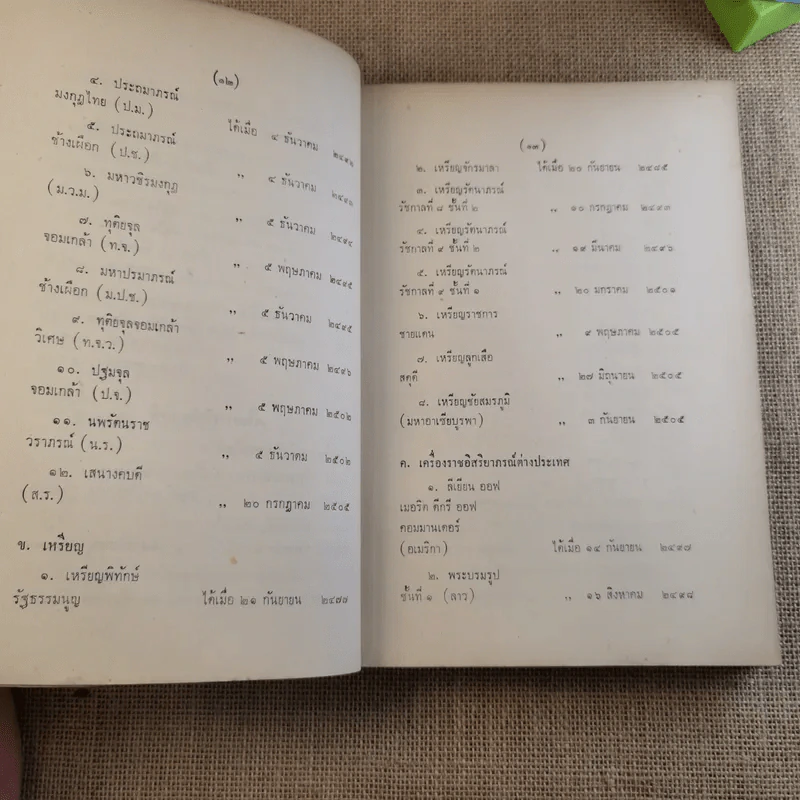 (๑๒)
๔. ประถมาภรณ์
มงกุฎไทย (ป.ม.) ได้เมื่อ ๔ ธันวาคม ๒๔๙๒
๕. ประถมาภรณ์
ช้างเผือก (ป.ช.) ,, ๔ ธันวาคม
๖. มหาวชิรมงกุฎ
(ม.ว.ม.) ,, ๕ ธันวาคม ๒๔๙๔
๗. ทุติยจุล
จอมเกล้า (ท.จ.) ,, ๕ พฤษภาคม ๒๔๙๕
๘. มหาปรมาภรณ์
ช้างเผือก (ม.ป.ช.) ,, ๕ ธันวาคม ๒๔๙๕
๙. ทุติยจุลจอมเกล้า
วิเศษ (ท.จ.ว.) ,, ๕ พฤษภาคม ๒๔๙๖
๑๐. ปฐมจุล
จอมเกล้า (ป.จ.) ,, ๕ พฤษภาคม ๒๕๐๒
๑๑. นพรัตนราช
วราภรณ์ (น.ร.) ,, ๕ ธันวาคม ๒๕๐๒
๑๒. เสนางคบดี
(ส.ร.) ,, ๒๐ กรกฎาคม ๒๕๐๕
ข. เหรียญ
๑. เหรียญพิทักษ์
รัฐธรรมนูญ ได้เมื่อ ๒๑ กันยายน ๒๔๗๗
(๑๓)
๒. เหรียญจักรมาลา ได้เมื่อ ๒๐ กันยายน ๒๔๘๕
๓. เหรียญรัตนาภรณ์
รัชกาลที่ ๘ ชั้นที่ ๒ ,, ๑๐ กรกฎาคม ๒๔๙๓
๔. เหรียญรัตนาภรณ์
รัชกาลที่ ๙ ชั้นที่ ๒ ,, ๑๙ มีนาคม ๒๔๙๖
๕. เหรียญรัตนาภรณ์
รัชกาลที่ ๙ ชั้นที่ ๑ ,, ๒๐ มกราคม ๒๕๐๑
๖. เหรียญราชการ
ชายแดน ,, ๙ พฤษภาคม ๒๕๐๕
๗. เหรียญลูกเสือ
สดุดี ,, ๒๗ มิถุนายน ๒๕๐๕
๘. เหรียญชัยสมรภูมิ
(มหาอาเซียบูรพา) ,, ๓ กันยายน ๒๕๐๕
ค. เครื่องราชอิสริยาภรณ์ต่างประเทศ
๑. ลีเยียน ออฟ
เมอริต ดีกรี ออฟ
คอมมานเดอร์
(อเมริกา) ได้เมื่อ ๑๔ กันยายน ๒๔๙๗
๒. พระบรมรูป
ชั้นที่ ๑ (ลาว) ,, ๑๖ สิงหาคม ๒๔๙๘